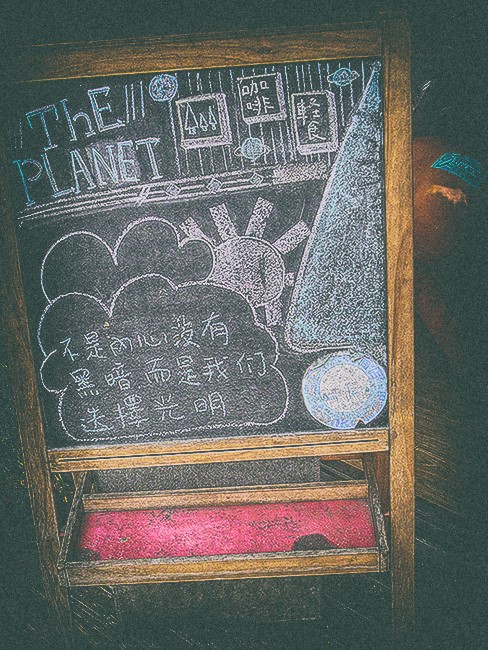 ThE
PLANET
咖啡
軽食
不是內心没有
黑暗而是我们
选擇光明